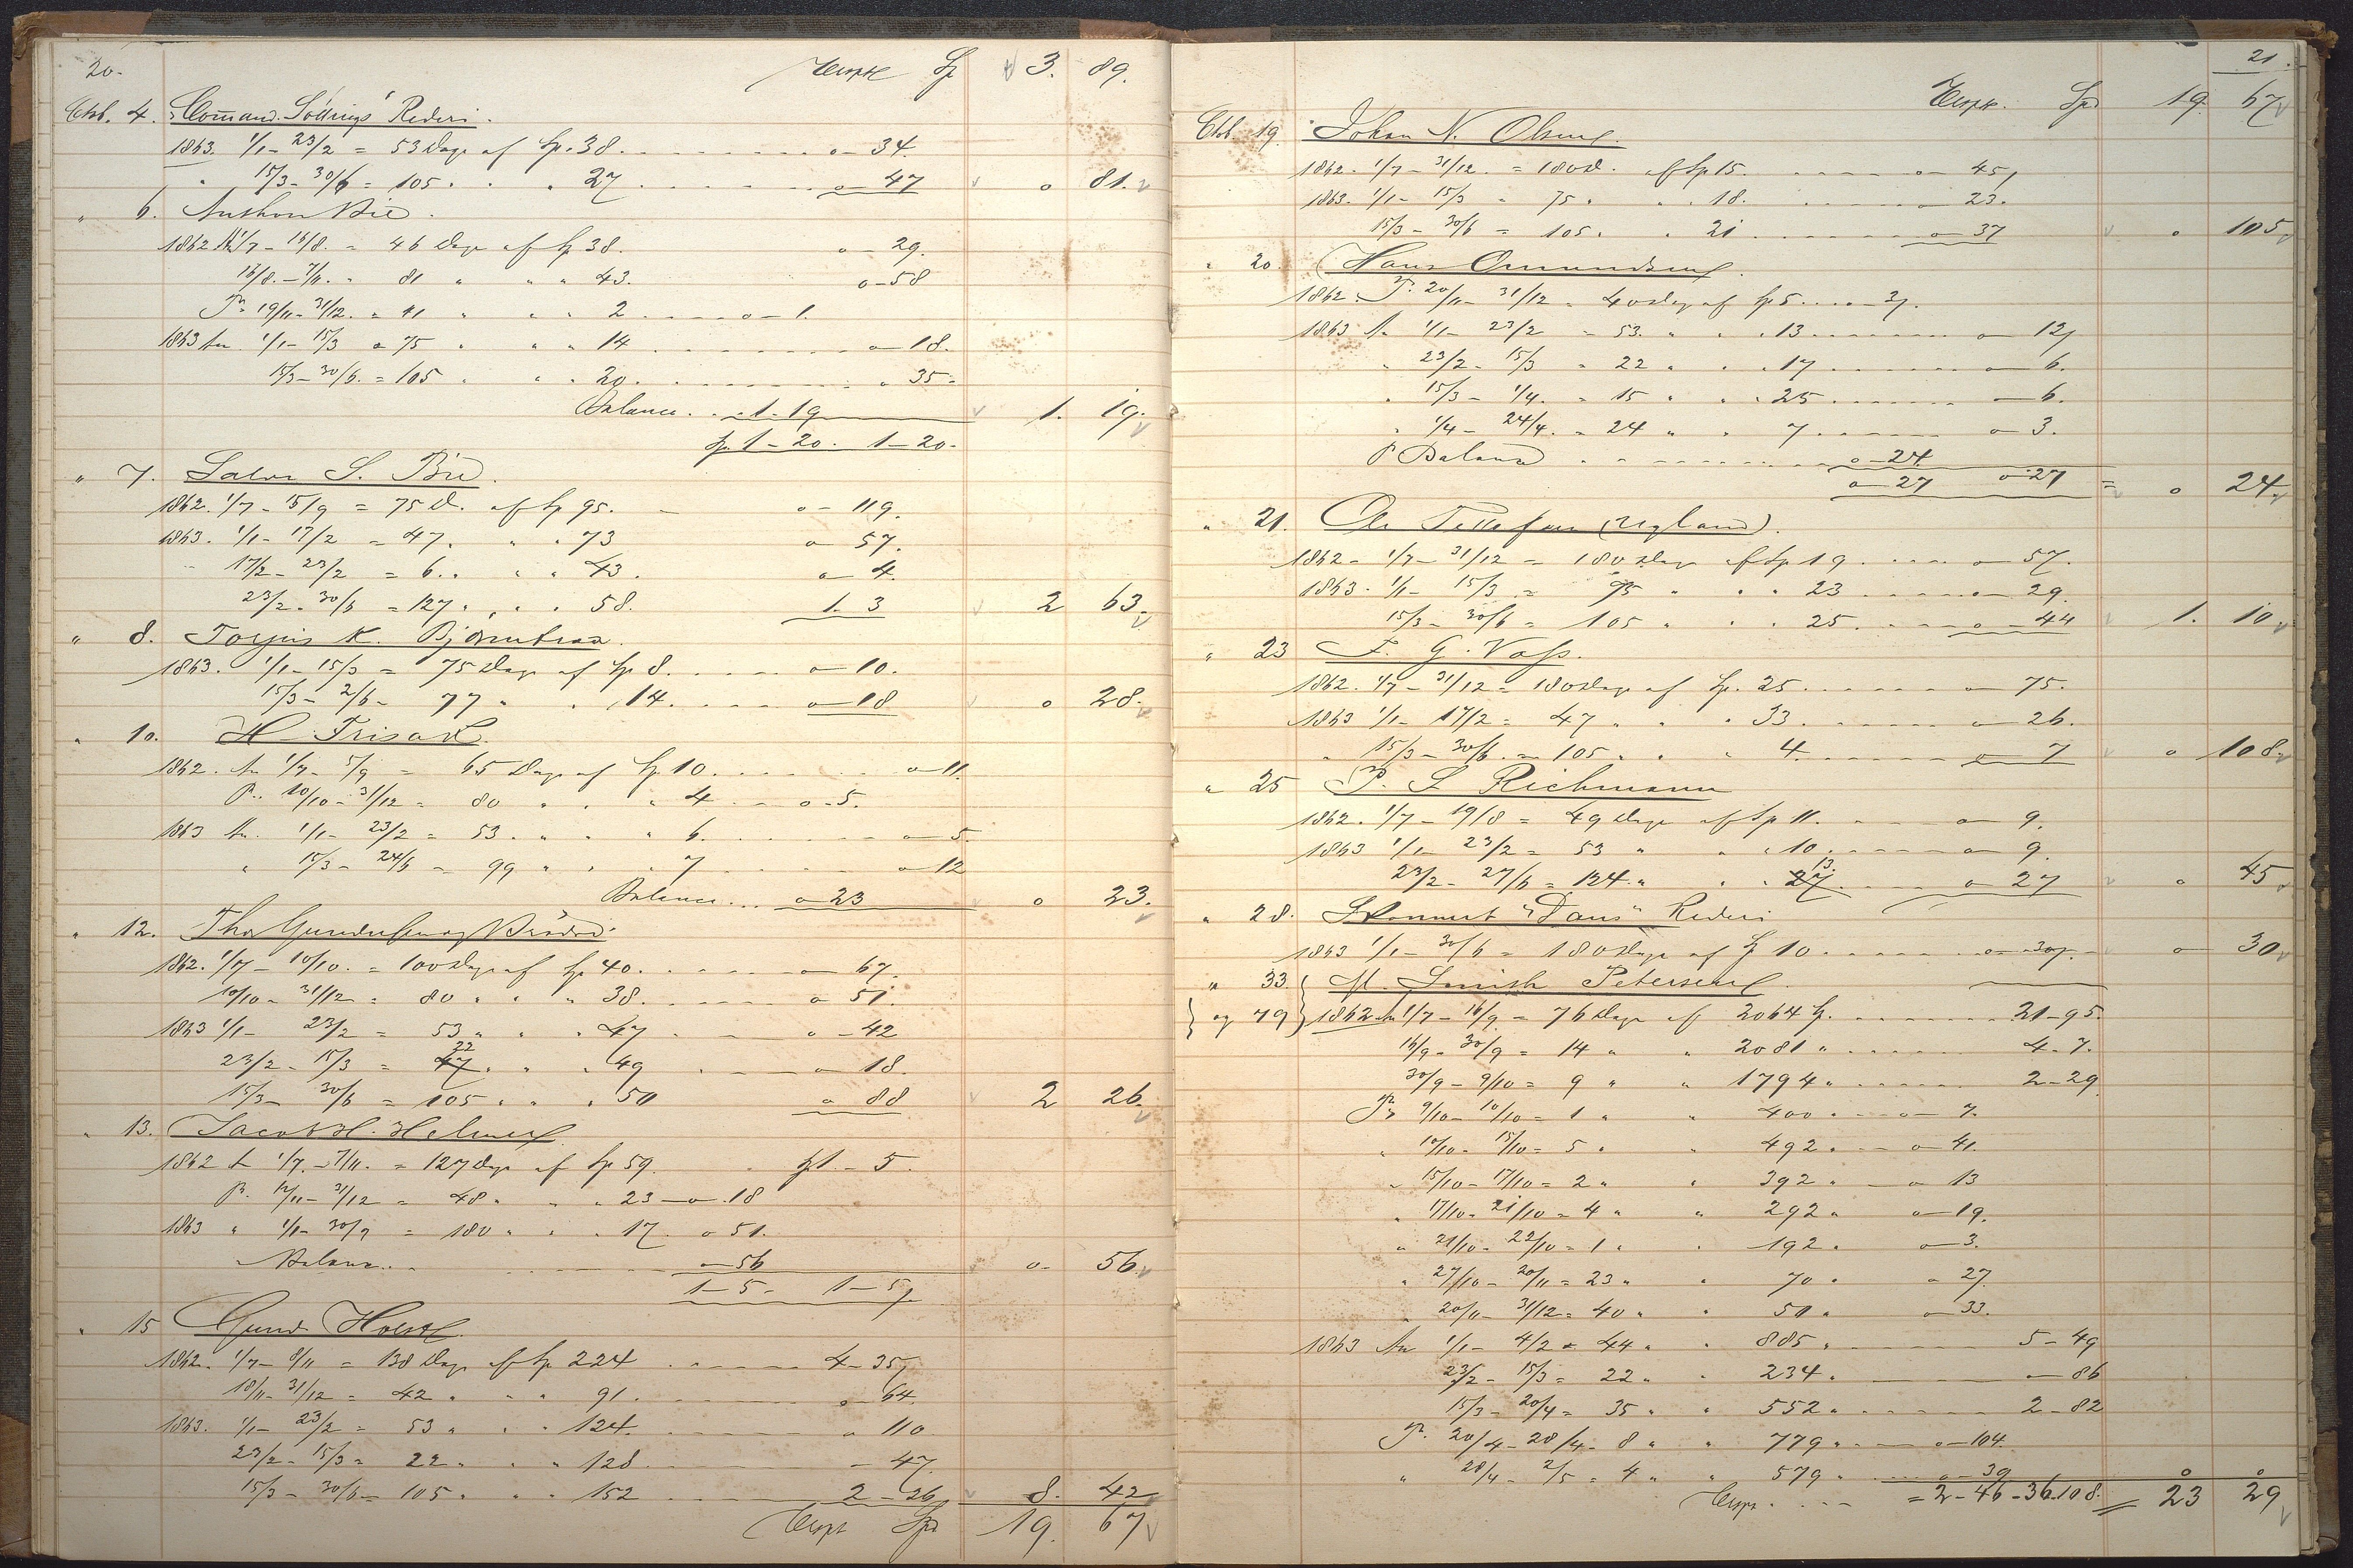 20. Transp. Sp 3. 89.
Ctob. 4. Command. Sölling's Rederi.
1863. 1/1 - 23/2 = 53 Dage af Sp. 38. o - 34.
" 15/3 - 30/6 = 105 " " " 27 o - 47 o 81.
" 6. Anthon Bie.
1862 An 1/7 - 16/8. = 46 Dage af Sp 38. o - 29.
16/8. - 7/11. = 81 " " " 43. o - 58
Pr. 19/11 - 31/12. = 41 " " " 2 o - 1.
1863 An. 1/1 - 15/3 = 75 " " " 14 o - 18.
15/3 - 30/6. = 105 " " " 20. " 35.
Balance. 1 - 19 1. 19.
Sp. 1 - 20. 1 - 20.
" 7. Salve S. Bie.
1862. 1/7 - 15/9 = 75 D. af Sp 95. o - 119.
1863. 1/1 - 17/2 = 47. " " 73 o 57.
17/2 - 23/2 = 6. " " " 43. o 4.
23/2 - 30/6 = 127 " " " 58. 1. 3 2 63.
" 8. Torjus K. Bjørnutraa.
1863. 1/1 - 15/3 = 75 Dage af Sp 8. o - 10.
15/3 - 2/6 - 77 " " 14. o - 18 o 28.
" 10. H. Frisak.
1862. An 1/7 - 5/9 = 65 Dage af Sp 10. o - 11.
P. 10/10 - 31/12 = 80 " " " 4 o - 5.
1863 An. 1/1 - 23/2 = 53. " " " 6. o - 5
" 15/3 - 24/6 = 99 " " " 7 o - 12
Balance... o - 23 o 23.
" 12. Tho Gundersen og Brødre
1862. 1/7 - 10/10. = 100 Dage af Sp 40. o - 67.
10/10 - 31/12 = 80 " " " 38. o 51.
1863 1/1 - 23/2 = 53 " " " 47 o - 42
23/2 - 15/3 = 47 22 " " " 49 o 18.
15/3 - 30/6 = 105 " " " 50 o 88 2 26.
" 13. Jacob H. Helmer
1862 An 1/7. - 7/11. = 127 Dage af Sp 59. Sp 1. - 5.
P. 12/11 - 31/12 = 48 " " " 23 - o - 18
1863 " 1/1 - 30/9 = 180 " " " 17. o 51.
Balance. o - 56 o - 56.
1 - 5 - 1 - 5
" 15 Gund. Holst.
1862. 1/7 - 8/11 = 138 Dage af Sp 224 4 - 35
18/11 - 31/12 = 42 " " " 91. o - 64.
1863. 1/1 - 23/2 = 53 " " " 124. o 110
23/2 - 15/3 = 22 " " " 128. - 47.
15/3 - 30/6 = 105 " " " 152 2 - 26 8. 42
Transp Spd 19. 67
21.
Transp. Spd 19. 67
Ctob. 19. Johan N. Olsen.
1862. 1/7 - 31/12. = 180 D. af Sp 15. o - 45,
1863. 1/1 - 15/3 = 75 " " " 18. o - 23.
15/3 - 30/6 = 105 " " 21 o - 37 o 105.
" 20. Hans Omundsen.
1862. P. 20/11 - 31/12 = 40 Dage af Sp 5. - 3.
1863 An 1/1 - 23/2 = 53. " " " 13 o - 12
" 23/2 - 15/3 = 22 " " " 17 o - 6.
" 15/3 - 1/4. = 15 " " " 25 o - 6.
" 1/4 - 24/4. = 24 " " 7 o - 3.
P Balance o - 24
o - 27 o - 27 = o 24.
" 21. Ole Tellefsen (Ugland).
1862 - 1/7 - 31/12 = 180 Dage af Sp 19 o - 57.
1863. 1/1 - 15/3 = 75 " " " 23 o - 29.
15/3 - 30/6 = 105 " " " 25 o - 44 1. 10.
" 23 F. G. Voss.
1862. 1/7 - 31/12 = 180 Dage af Sp. 25 o - 75.
1863 1/1 - 17/2 = 47 " " " 33 o - 26.
" 15/3 - 30/6 = 105 " " " 4. o 7 o 108
" 25 P. S Richmann
1862. 1/7 - 19/8 = 49 Dage af Sp 11. o - 9.
1863 1/1 - 23/2 = 53 " " " 10. o - 9
23/2 - 27/6 = 124. " " " 27 13. o 27 o 45
" 28. Skonnert "Dans" Rederi
1863 1/1 - 30/6 = 180 Dage af Sp 10 o - 30 o 30
" 33 M. Smith Petersen.
og 79 1862 An 1/7 - 16/9 = 76 Dage af 2064 Sp. 21 - 95.
16/9 - 30/9 = 14 " " 2081 " 4 - 7.
30/9 - 9/10 = 9 " " 1794 " 2 - 29
Pr 9/10 - 10/10 = 1 " " 400 " o - 7.
" 10/10 - 15/10 = 5 " " 492 " o - 41.
" 15/10 - 17/10 = 2 " " 392 " o 13
" 17/10 - 21/10 = 4 " " 292 " o - 19.
" 21/10 - 22/10 = 1 " " 192 " o - 3.
" 27/10 - 20/11 = 23 " " 70 " o 27.
20/11 - 31/12 = 40 " " 50 " o - 33.
1863 An 1/1 - 4/2 = 44 " " 885 " 5 - 49
23/2 - 15/3 = 22 " " 234 " - 86
15/3 - 20/4 = 35 " " 552 " 2 - 82
P. 20/4 - 28/4 - 8 " " 779 " o - 104.
" 28/4 - 2/5 = 4 " " 579 " o - 39 o o
Transp. = 2 - 46 - 36 - 108. = 23 29